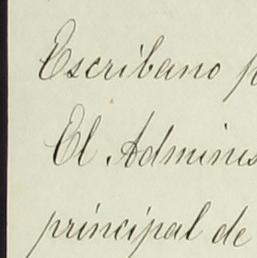 Escribano p
El Adminis
principal de